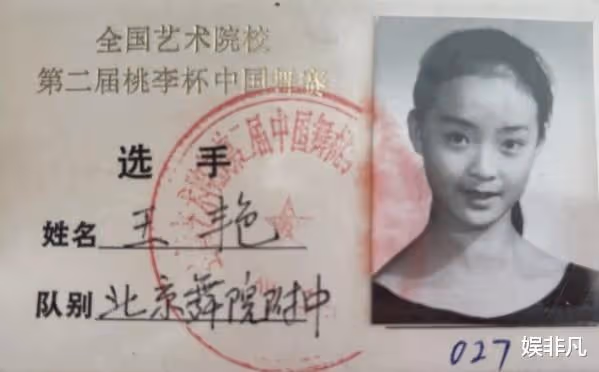 全国艺术院校
第二届桃李杯中国舞赛
选手
姓名 王艳
队别 北京舞院附中
027
娱非凡